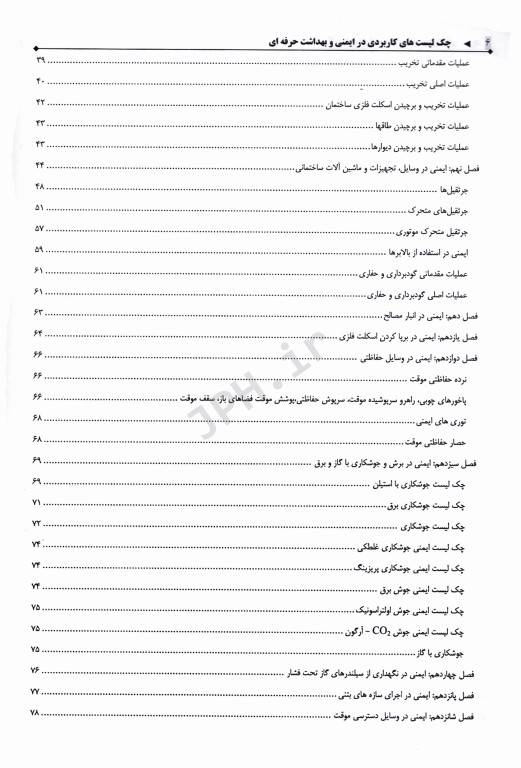 ۴ ◄ چک لیست های کاربردی در ایمنی و بهداشت حرفه ای
عملیات مقدماتی تخریب ........ ۳۹
عملیات اصلی تخریب ........ ۴۰
عملیات تخریب و برچیدن اسکلت فلزی ساختمان ........ ۴۲
عملیات تخریب و برچیدن طاقها ........ ۴۳
عملیات تخریب و برچیدن دیوارها ........ ۴۳
فصل نهم: ایمنی در وسایل، تجهیزات و ماشین آلات ساختمانی ........ ۴۴
جرثقیل‌ها ........ ۴۸
جرثقیل‌های متحرک ........ ۵۱
جرثقیل متحرک موتوری ........ ۵۷
ایمنی در استفاده از بالابرها ........ ۵۹
عملیات مقدماتی گودبرداری و حفاری ........ ۶۱
عملیات اصلی گودبرداری و حفاری ........ ۶۱
فصل دهم: ایمنی در انبار مصالح ........ ۶۳
فصل یازدهم: ایمنی در برپا کردن اسکلت فلزی ........ ۶۴
فصل دوازدهم: ایمنی در وسایل حفاظتی ........ ۶۶
نرده حفاظتی موقت ........ ۶۶
پاخورهای چوبی، راهرو سرپوشیده موقت، سرپوش حفاظتی،پوشش موقت فضاهای باز، سقف موقت ........ ۶۶
توری های ایمنی ........ ۶۸
حصار حفاظتی موقت ........ ۶۸
فصل سیزدهم: ایمنی در برش و جوشکاری با گاز و برق ........ ۶۹
چک لیست جوشکاری با استیلن ........ ۶۹
چک لیست جوشکاری برق ........ ۷۱
چک لیست جوشکاری ........ ۷۲
چک لیست ایمنی جوشکاری غلطکی ........ ۷۴
چک لیست ایمنی جوشکاری پریزینگ ........ ۷۴
چک لیست ایمنی جوش برق ........ ۷۴
چک لیست ایمنی جوش اولتراسونیک ........ ۷۵
چک لیست ایمنی جوش CO2 – آرگون ........ ۷۵
جوشکاری با گاز ........ ۷۵
فصل چهاردهم: ایمنی در نگهداری از سیلندرهای گاز تحت فشار ........ ۷۶
فصل پانزدهم: ایمنی در اجرای سازه های بتنی ........ ۷۷
فصل شانزدهم: ایمنی در وسایل دسترسی موقت ........ ۷۸
JPH.ir